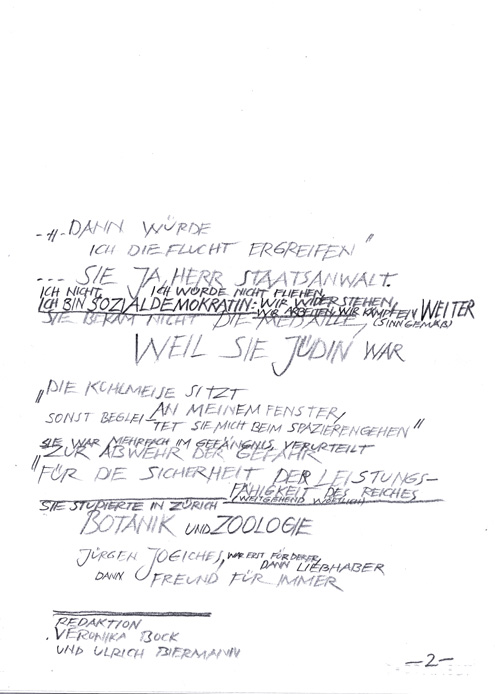 -"-DANN WÜRDE
ICH DIE FLUCHT ERGREIFEN"
--- SIE JA, HERR STAATSANWALT.
ICH NICHT, ICH WÜRDE NICHT FLIEHEN,
ICH BIN SOZIALDEMOKRATIN: WIR WIDERSTEHEN,
WIR ARBEITEN, WIR KÄMPFEN WEITER
(SINNGEMÄß)
SIE BEKAM NICHT DIE MEDAILLE,
WEIL SIE JÜDIN WAR
"DIE KOHLMEISE SITZT
AN MEINEM FENSTER,
SONST BEGLEI-
TET SIE MICH BEIM SPAZIERENGEHEN"
SIE WAR MEHRFACH IM GEFÄNGNIS, VERURTEILT
"ZUR ABWEHR DER GEFAHR
FÜR DIE SICHERHEIT DER LEISTUNGS-
FÄHIGKEIT DES REICHES
(WEITGEHEND WÖRTLICH)
SIE STUDIERTE IN ZÜRICH
BOTANIK UND ZOOLOGIE
JÜRGEN JOGICHES, WAR ERST FÖRDERER,
DANN LIEBHABER
DANN FREUND FÜR IMMER
REDAKTION
VERONIKA BOCK
UND ULRICH BIERMANN
-2-